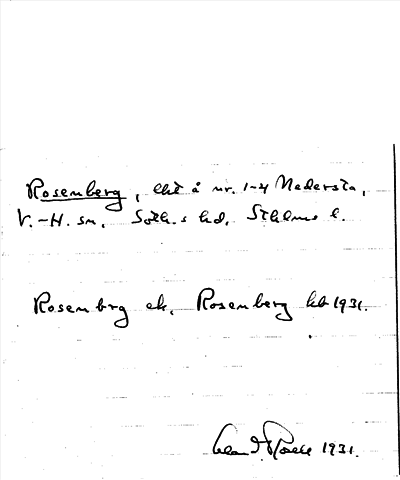 Rosenberg, lht å nr. 1-4 Nedersta,
V.-H. sn, Soth.s hd, Sthlms l.
Rosenbrg ek, Rosenberg kb 1931.
1931.